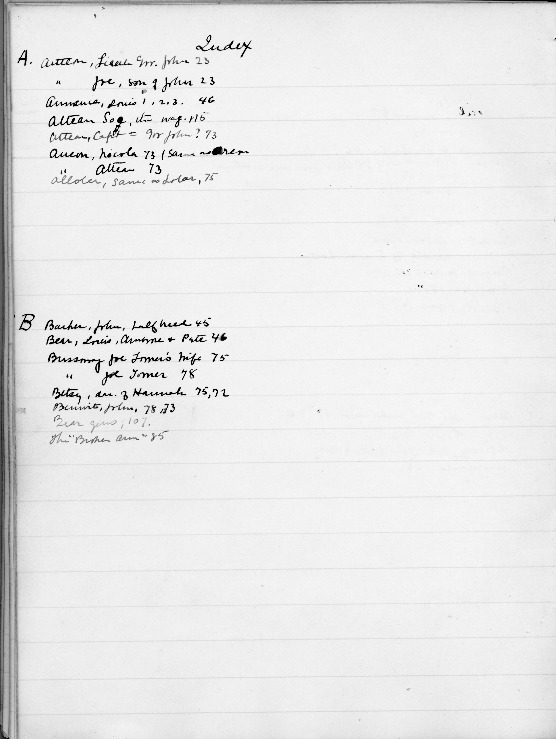 Index
A. Attean, Lieut. Gov. John 23
" Joe, son of John 23
Annance, Louis 1, 2, 3. 46
Attean Sog, 115
Attean, Capt = Gov John? 73
Aneon, Nicola 73 (Same as
" Attean 73
same as Lolar, 75
B Barker, John, half breed 45
Bear, Louis, Ambrose & Pete 46
Bussomy Joe Tomer's Wife 75
" Joe Tomer 78
Betsy, dau. of Hannah 75, 72
Bennett, John, 78, 73
Bear 107.
The "Broken arm" 85